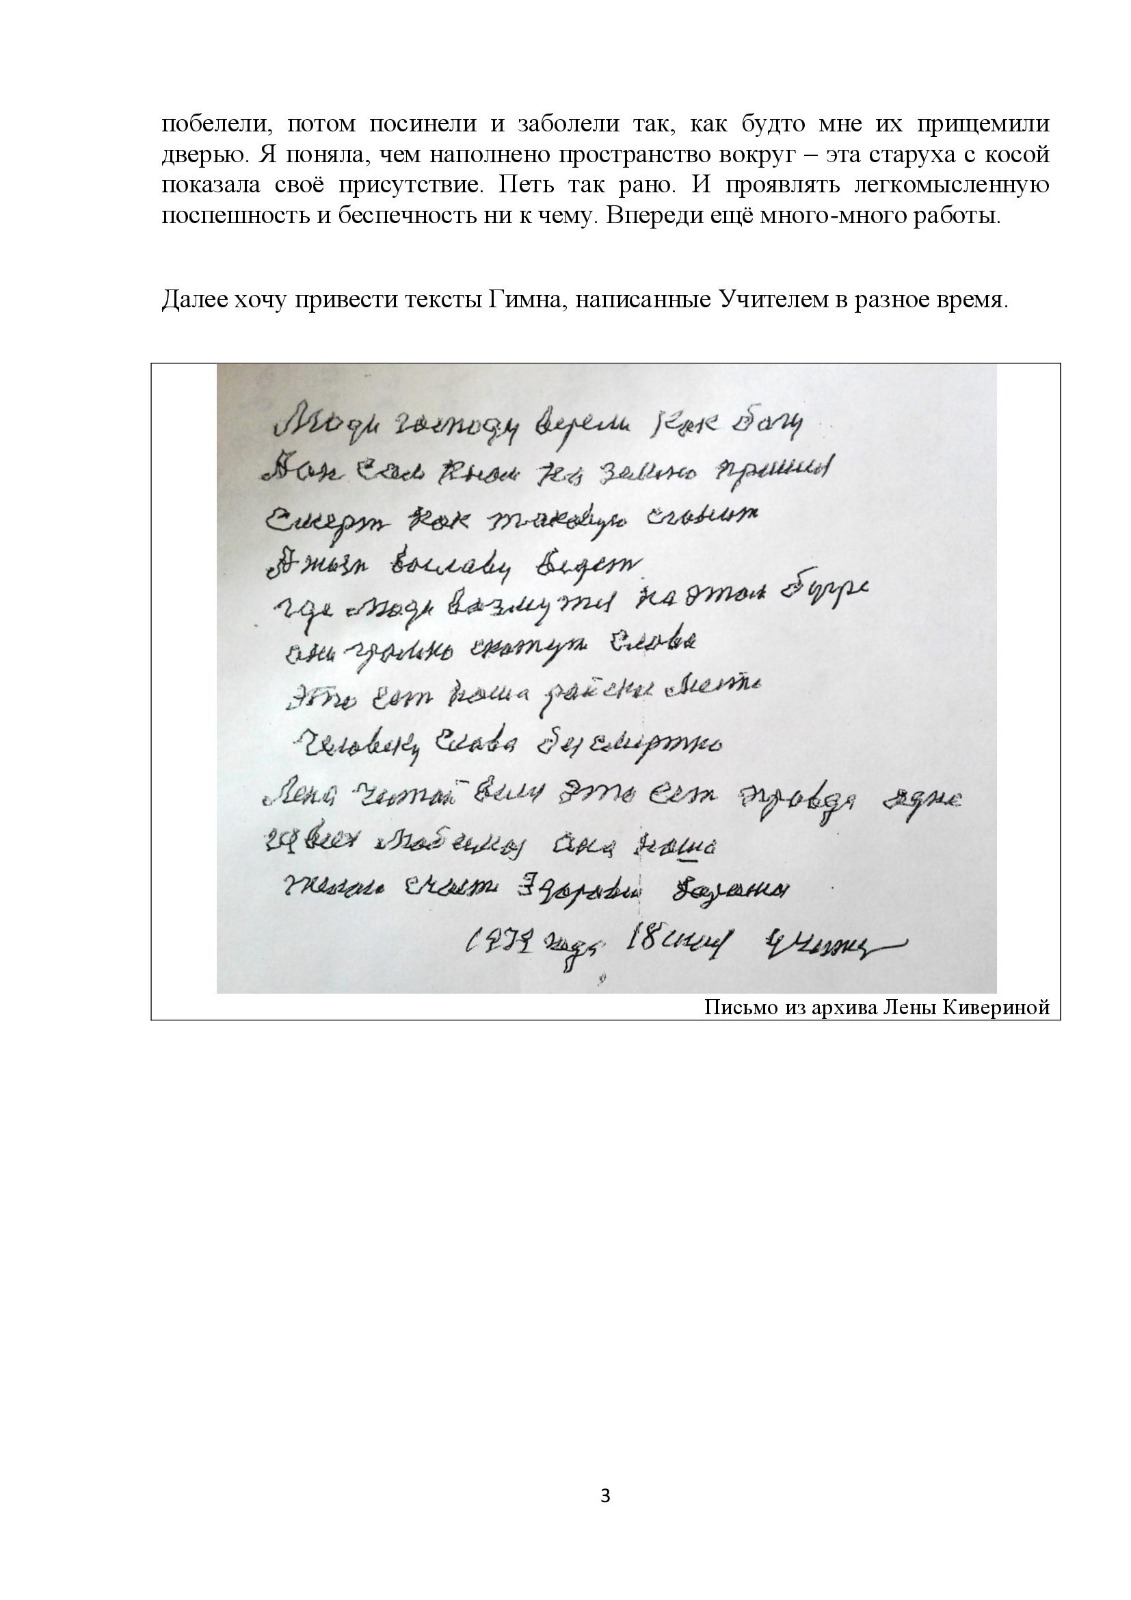 побелели, потом посинели и заболели так, как будто мне их прищемили
дверью. Я поняла, чем наполнено пространство вокруг – эта старуха с косой
показала своё присутствие. Петь так рано. И проявлять легкомысленную
поспешность и беспечность ни к чему. Впереди ещё много-много работы.
Далее хочу привести тексты Гимна, написанные Учителем в разное время.
Люди господу верели как богу
А он сам к нам на землю пришел
Смерт как таковую сгонит
А жызн вославу ведет
где люди возмутся на этом бугре
они громно скажут слова
Это ест наша райски место
Человеку слава безсмертно
Лена читай это ест правда одна
всех любимая она наша
желаю счаст здоровя хорошия
1979 года 18 учител
Письмо из архива Лены Кивериной
3